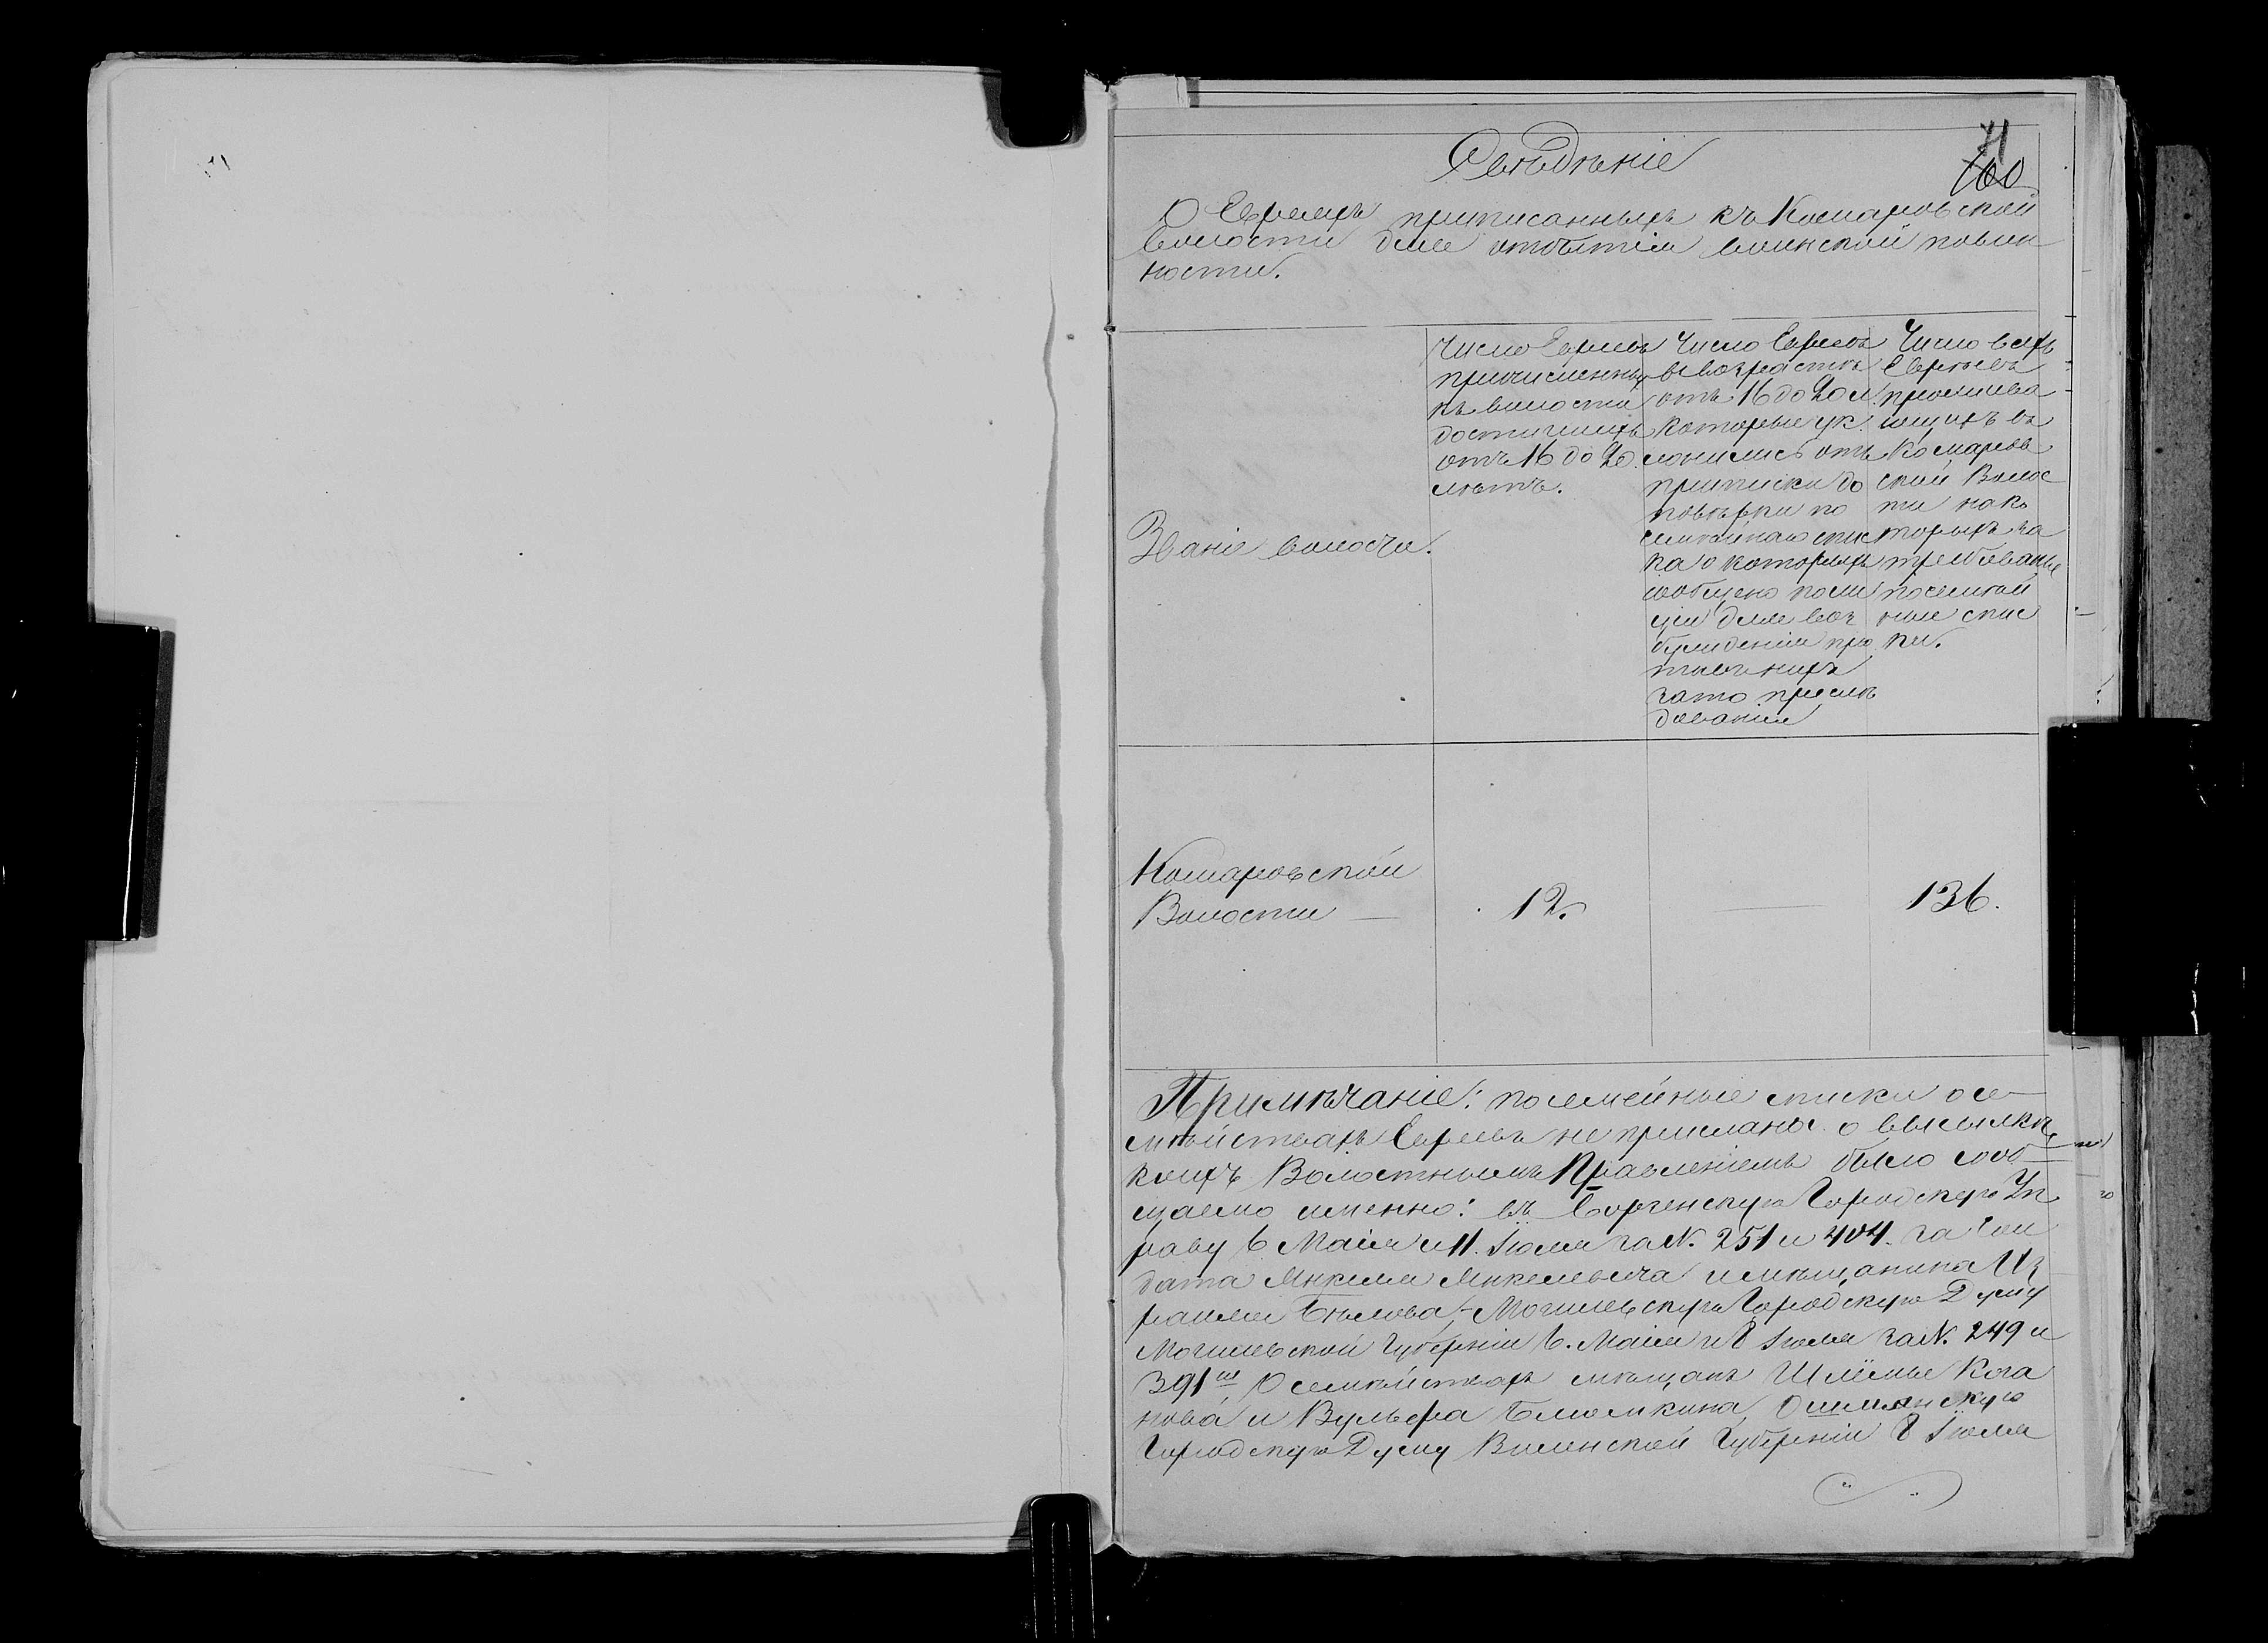 Свѣдѣніе
71
100
О Евреяхъ приписанныхъ къ Комаровской
волости для отбытія воинской повин
ности.
Званіе волости.
Число Евреевъ
причисленных
къ волости
достигшихъ
отъ 16 до 20
лѣтъ.
Число Евреевъ
въ возрастѣ
отъ 16 до 20 л.
которые ук
лонились отъ
приписки до
повѣрки по
семейнаго спис
ка о которыхъ
сообщено поли
ціи для воз
бужденія про
тивъ нихъ
зато преслѣ
дованія
Число всѣхъ
Евреевъ
прожива
ющихъ въ
Комаров
ской Волос
ти на ко
торыхъ за
требованы
посемей
ные спис
ки.
Комаровской
Волости —
12.
—
136.
Примѣчаніе: посемейные списки о се
мѣйствахъ Евреевъ не присланы о высылкѣ
коихъ Волостнымъ Правленіемъ было сооб
щаемо именно: въ Городскую Уп
раву 6 Маія и 11 Іюля за N. 251 и 404. за Сол
дата и мѣщанина Из
раиля Бѣлова,- Могилевскую Городскую Думу
Могилевской Губерніи 6. Маія и 8 Іюля за N. 249 и
391 О семѣйствахъ мѣщанъ Шлёмы Кога
нова и Вульфа Блюмкина, Ошмянскую
Городскую Думу Виленской Губерніи 8 Іюля